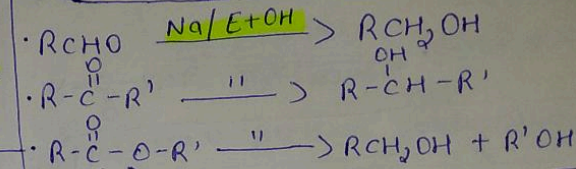 · RCHO Na/EtOH > RCH₂OH
O OH
· R-C-R' " > R-CH-R'
O
· R-C-O-R' " > RCH₂OH + R'OH